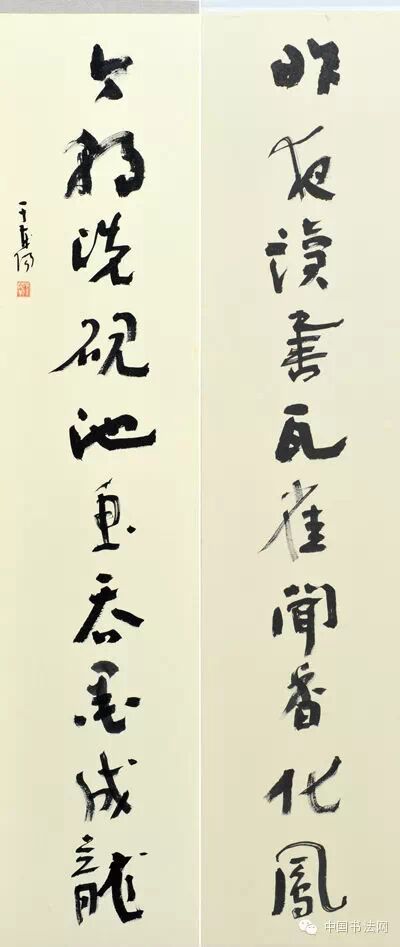 昨夜讀書瓦雀聞香化鳳
今朝洗硯池魚吞墨成龍
中国书法网